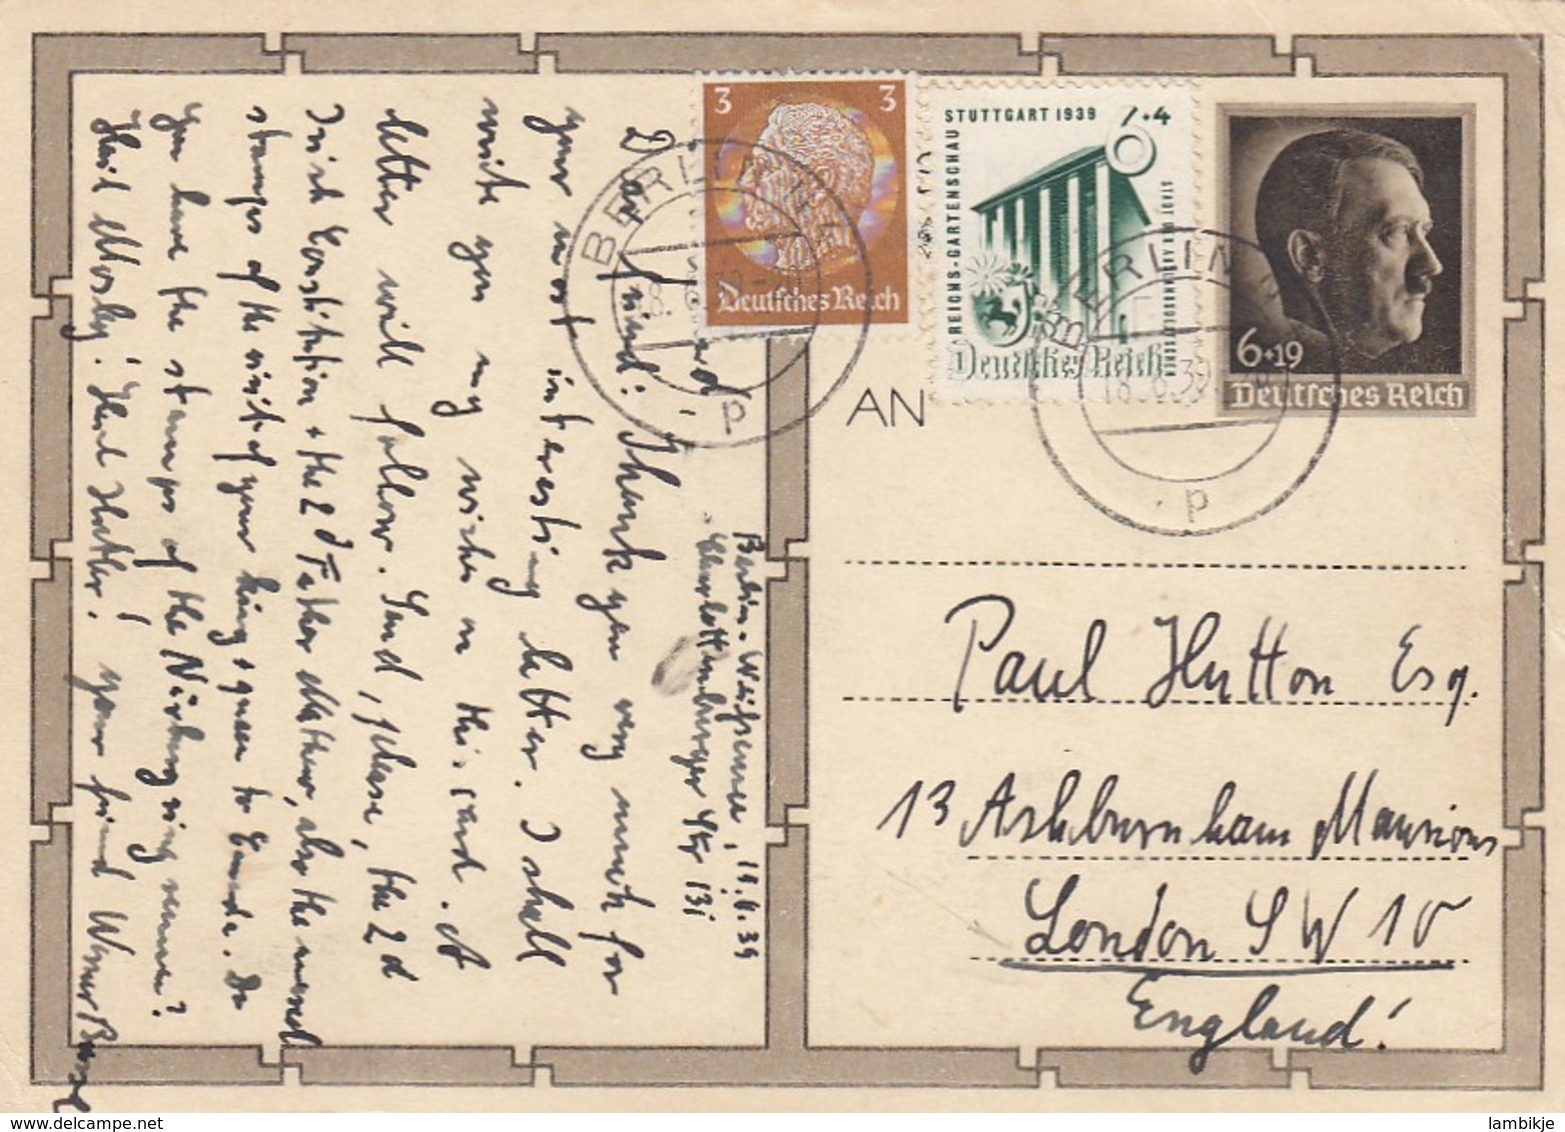 Berlin-Weißensee, 11.6.39
Charlottenburger Str 131
Dear friend: Thank you very much for
your most interesting letter. I shall
write you my wishes on this card. A
letter will follow. Send, please, the 2d
Irish Constitution + the 2d Father Mathew, also the used
stamps of the visit of your king + queen to Canada. Do
you have the stamps of the Nürburgring rennen?
Heil Mosley! Heil Hitler! your friend Werner
3 3
Deutsches Reich
STUTTGART 1939
6+4
REICHS-GARTENSCHAU
STADT DER AUSLANDSDEUTSCHEN
Deutsches Reich
6+19
Deutsches Reich
BERLIN
18.6.39
p
BERLIN
18.6.39
p
AN
Paul Hutton Esq.
13 Ashburnham Mansions
London SW 10
England!
lambikje